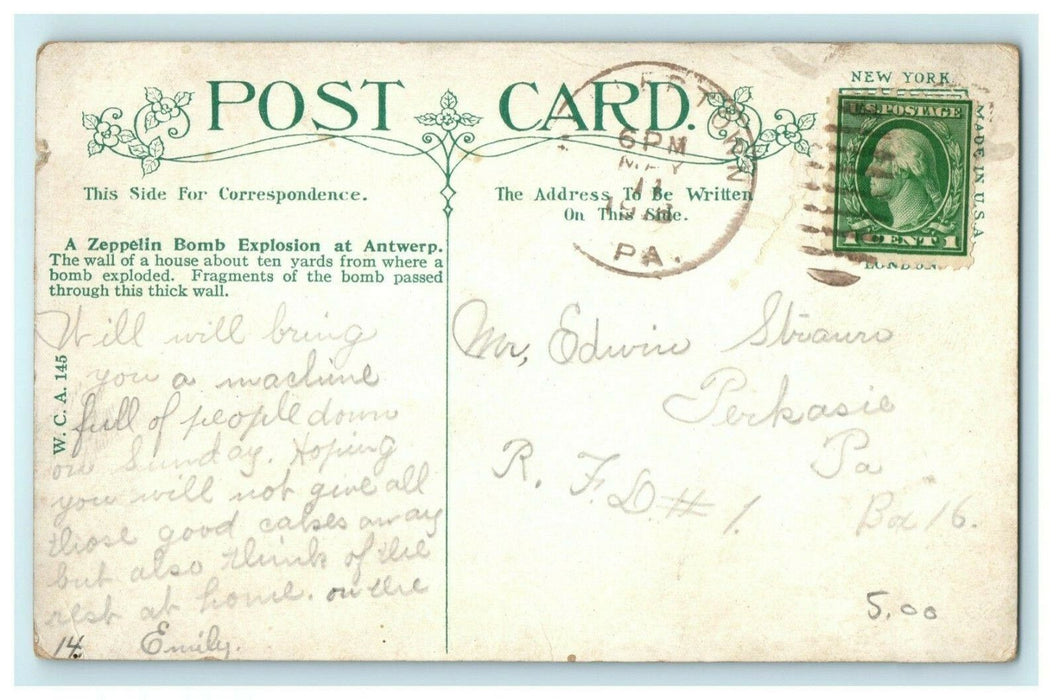 POST CARD.
This Side For Correspondence.
The Address To Be Written
On This Side.
NEW YORK
MADE IN U.S.A.
LONDON
U.S. POSTAGE
1 CENT 1
6 PM
MAY
11
PA.
A Zeppelin Bomb Explosion at Antwerp.
The wall of a house about ten yards from where a
bomb exploded. Fragments of the bomb passed
through this thick wall.
W. C. A. 145
Will will bring
you a machine
full of people down
on Sunday. Hoping
you will not give all
those good cakes away
but also think of the
rest at home. on the
14. Emily.
Mr, Edwin
Perkasie
Pa
R. F. D. # 1.
Box 16.
5.00